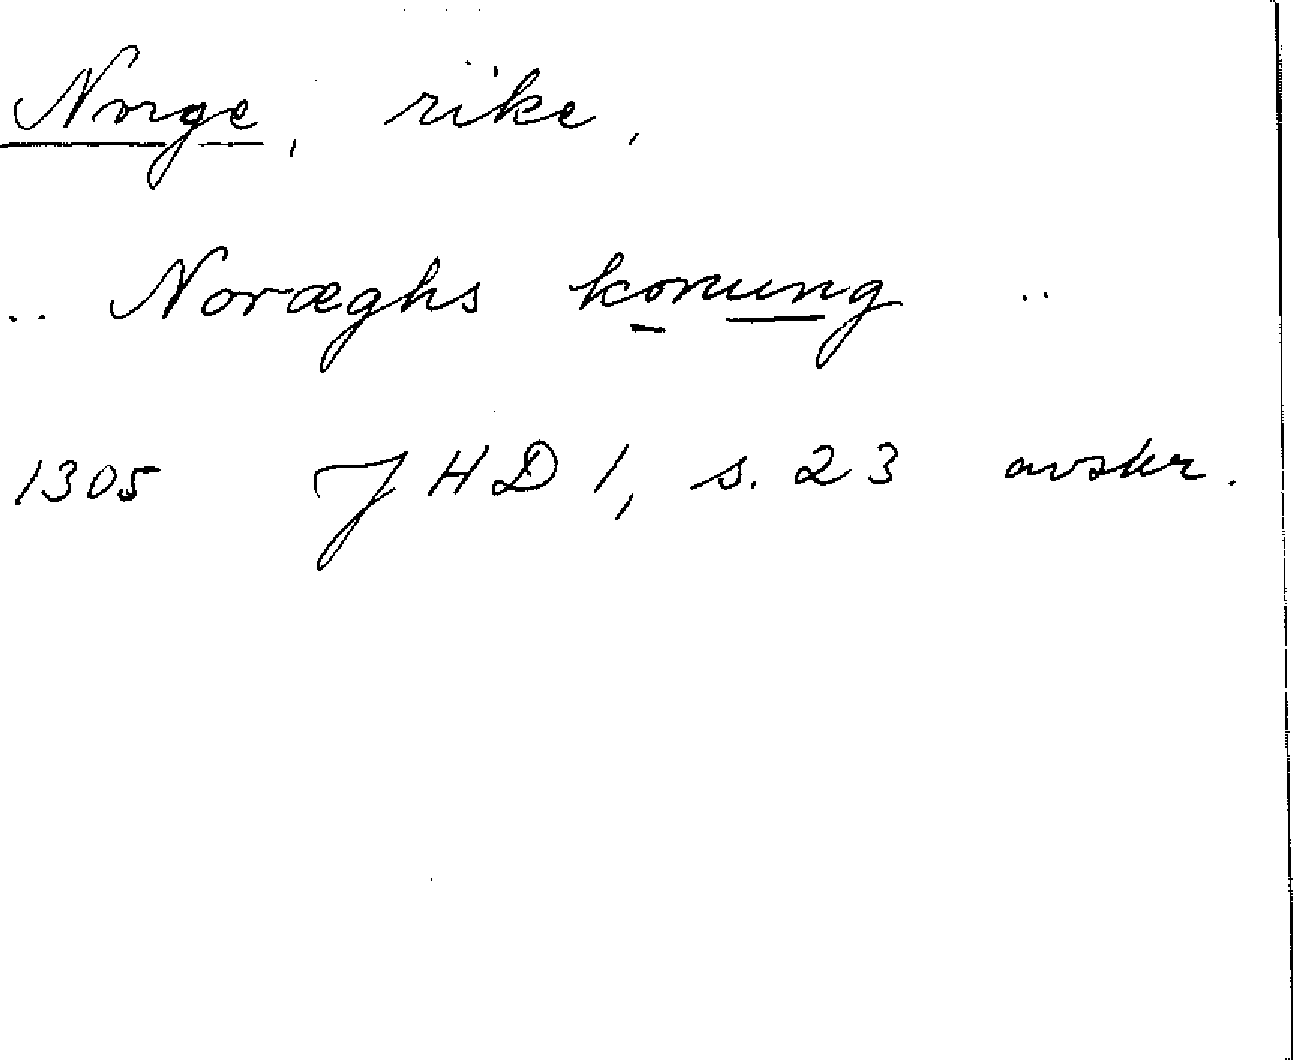 Norge, rike,
.. Noræghs konung ..
1305 JHD 1, s. 23 avskr.